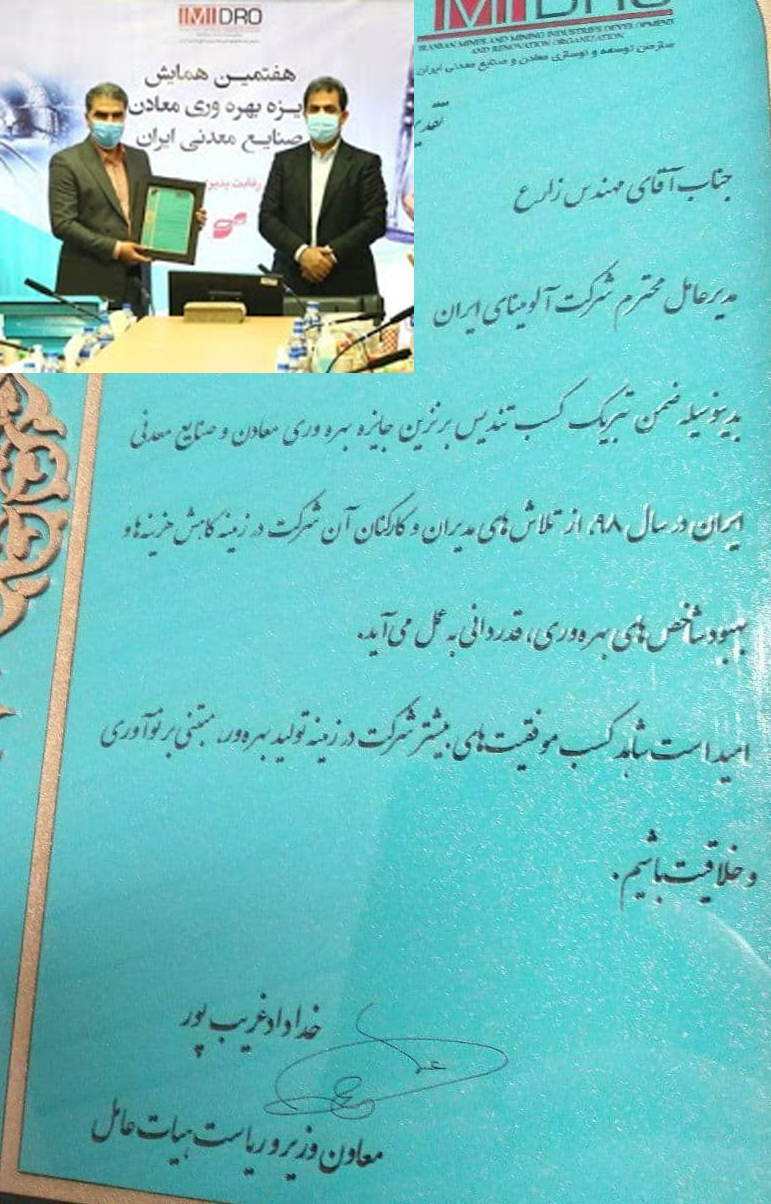 IMIDRO
هفتمین همایش
یزه بهره وری معادن
صنایع معدنی ایران
رقابت پذیری
IMIDRO
IRANIAN MINES AND MINING INDUSTRIES DEVELOPMENT
AND RENOVATION ORGANIZATION
سازمان توسعه و نوسازی معادن و صنایع معدنی ایران
تقدیر
جناب آقای مهندس زارع
مدیرعامل محترم شرکت آلومینای ایران
بدینوسیله ضمن تبریک کسب تندیس برنزین جایزه بهره وری معادن و صنایع معدنی
ایران در سال ۹۸، از تلاش های مدیران و کارکنان آن شرکت در زمینه کاهش هزینه ها و
بهبود شاخص های بهره وری، قدردانی به عمل می آید.
امید است شاهد کسب موفقیت های بیشتر شرکت در زمینه تولید بهره ور، مبتنی بر نوآوری
و خلاقیت باشیم.
خداداد غریب پور
معاون وزیر و ریاست هیات عامل